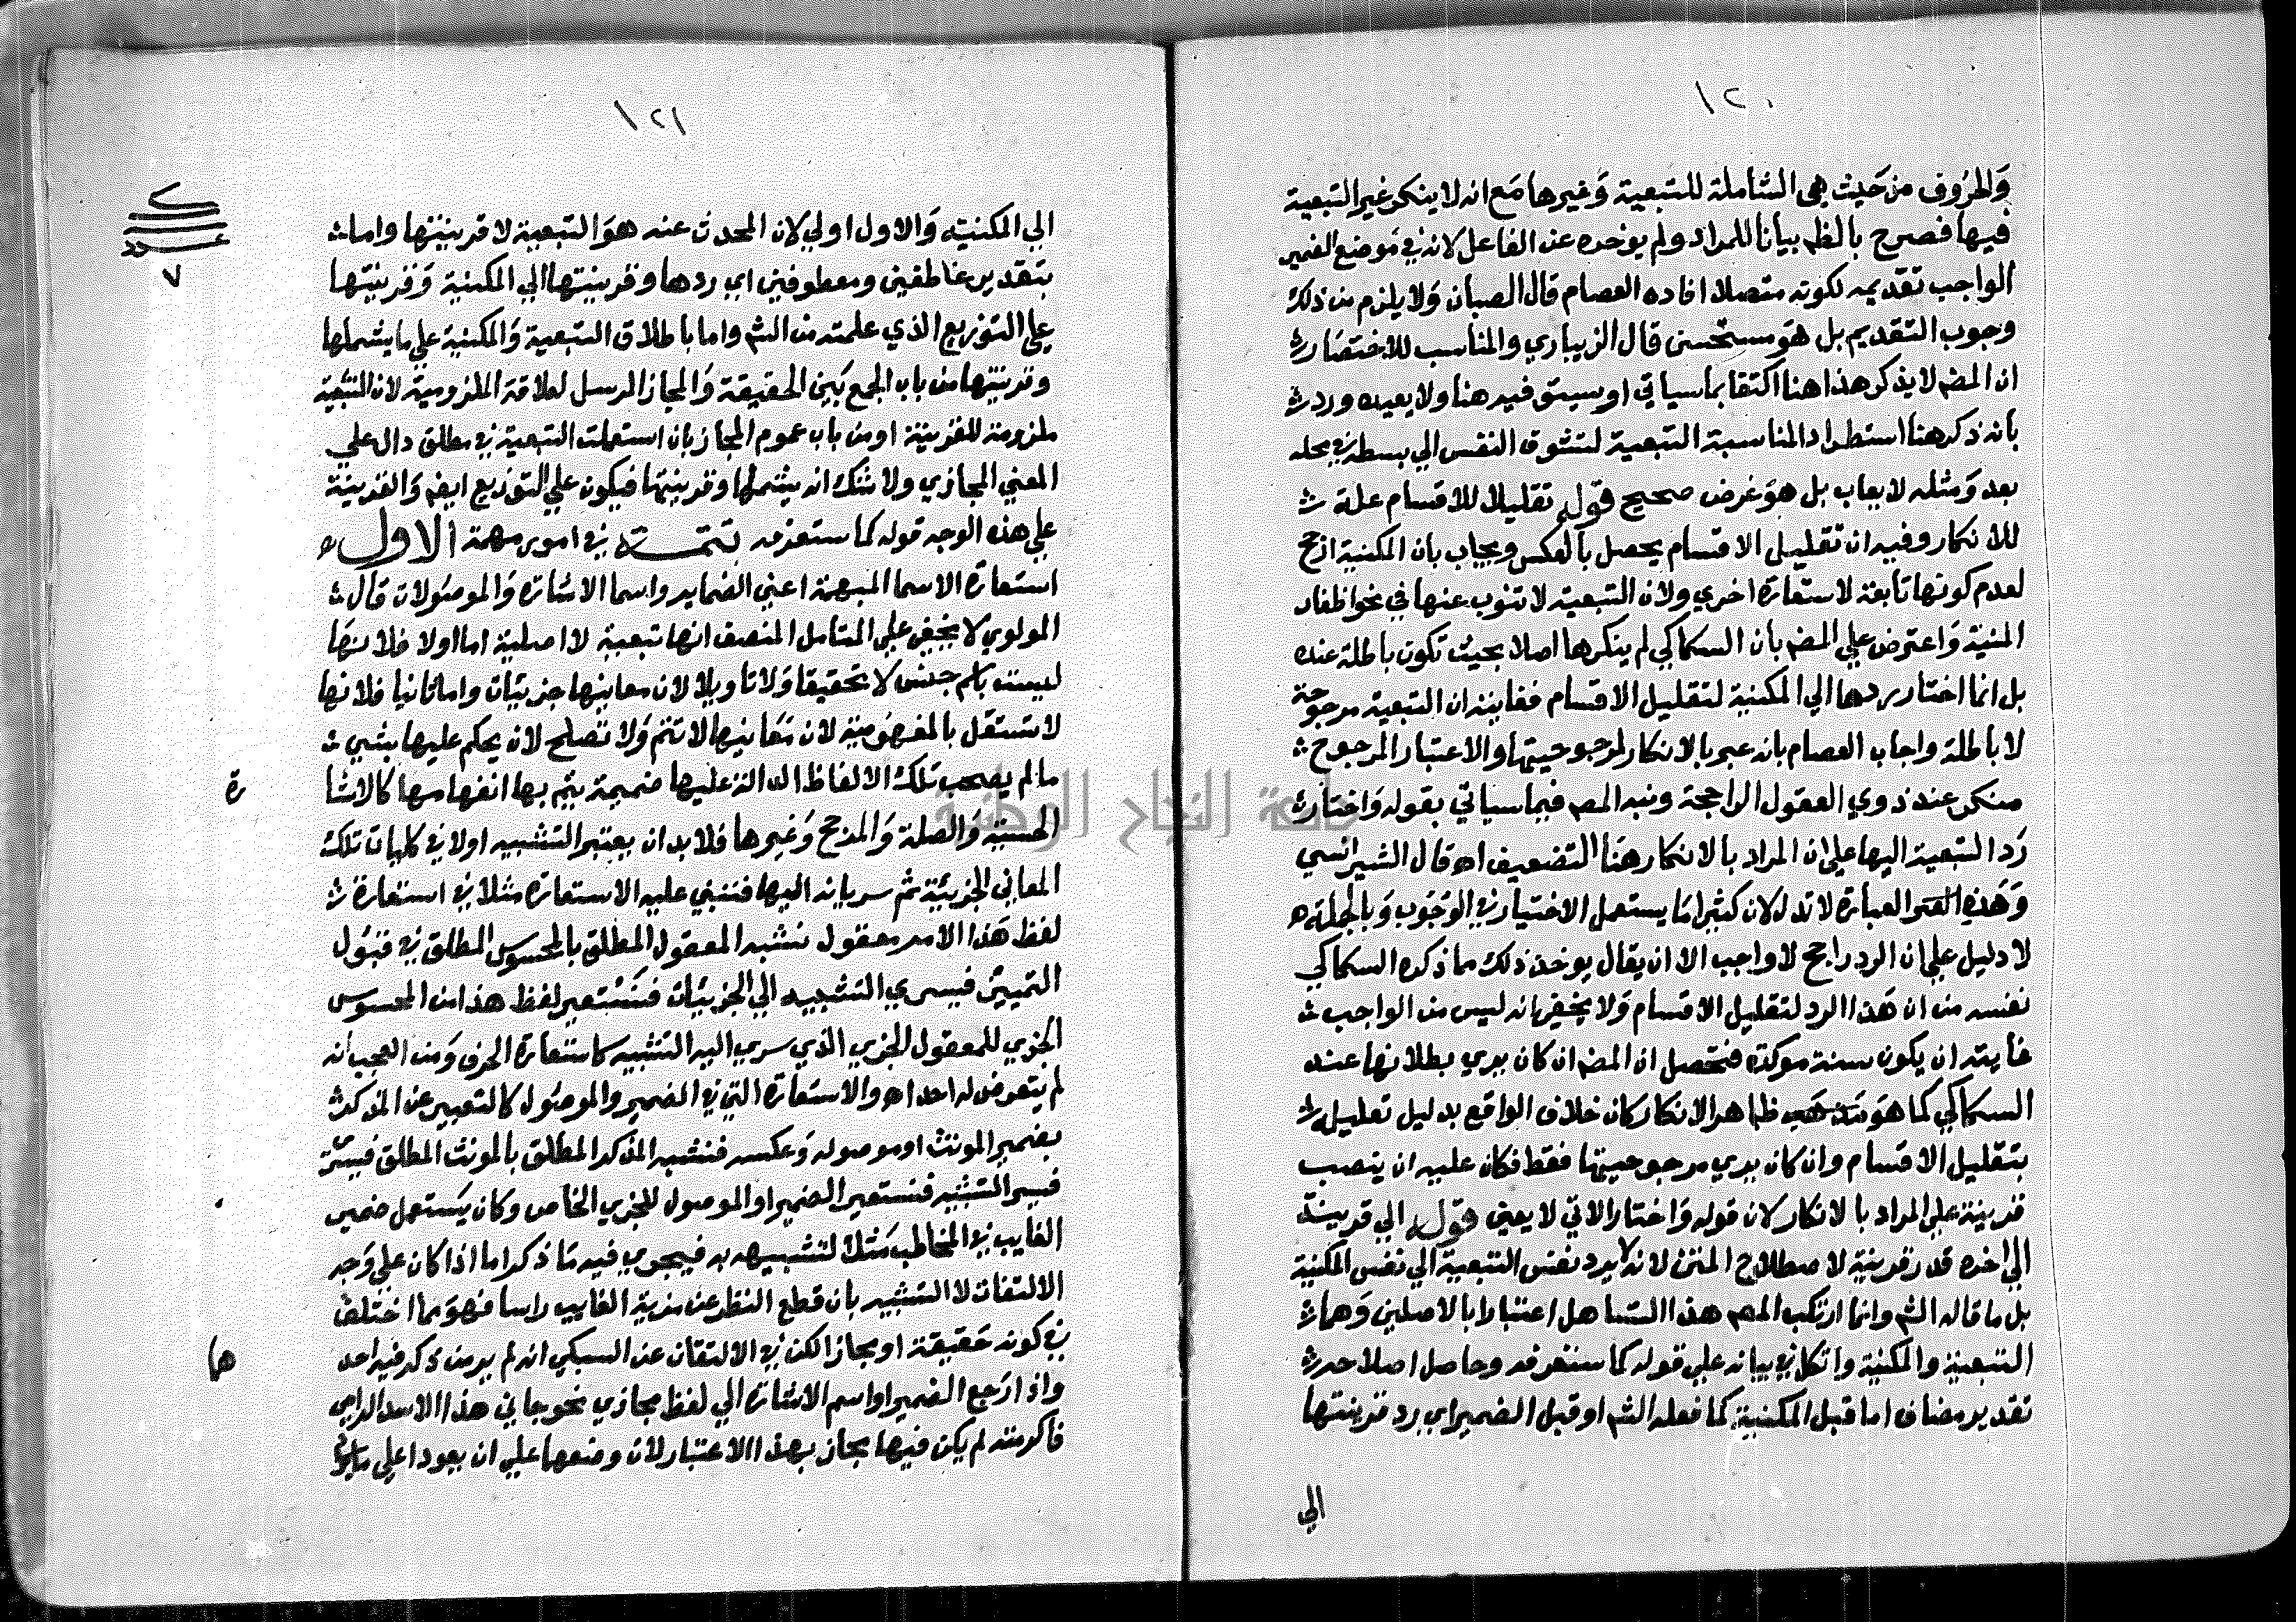 ١٢٠
والحروف من حيث هي الشاملة للتبعية وغيرها مع انه لا ينكر غير التبعية
فيها فصرح بالظم بيانا للمراد ولم يوخره عن الفاعل لانه في موضع الضمير
الواجب تقديمه لكونه متصلا افاده العصام قال الصبان ولا يلزم من ذلك
وجوب التقديم بل هو مستحسن قال الزيباري والمناسب للاختصار
ان المض لا يذكر هذا هنا اكتفا بما سياتي او سيق فيه هنا ولا يعيده ورد
بانه ذكر هنا استطراد المناسبة التبعية لتشوق النفس الي بسطه في محله
بعد ومثله لا يعاب بل هو غرض صحيح قوله تقليلا للاقسام علة
للانكار وفيه ان تقليل الاقسام يحصل بالعكس ويجاب بان المكنية ارجح
لعدم كونها تابعة لاستعارة اخري ولان التبعية لا تنوب عنها في نحو اظفار
المنية واعترض علي المض بان السكاكي لم ينكرها اصلا بحيث تكون باطلة عنده
بل انما اختار ردها الي المكنية لتقليل الاقسام فغايته ان التبعية مرجوحة
لا باطلة واجاب العصام بانه عبر بالانكار لمرجوحيتها والاعتبار المرجوح
منكر عند ذوي العقول الراجحة ونبه المص فيما سياتي بقوله واختار
رد التبعية اليها علي ان المراد بالانكار هنا التضعيف اه قال الشيرانسي
وهذه العبارة لا تدل لان كثيرا ما يستعمل الاختيار في الوجوب وبالجملة
لا دليل علي ان الرد راجح لا واجب الا ان يقال يوخذ ذلك مما ذكره السكاكي
نفسه من ان هذا الرد لتقليل الاقسام ولا يخفي انه ليس من الواجب
غايته ان يكون سنة موكدة فتحصل ان المض ان كان يري بطلانها عند
السكاكي كما هو ظاهر الانكار كان خلاف الواقع بدليل تعليله
بتقليل الاقسام وان كان يري مرجوحيتها فقط فكان عليه ان ينصب
قرينة علي المراد بالانكار لان قوله واختار الاتي لا يعين قوله الي قرينة
الي اخره قدر قرينة لاصطلاح المتن لانه لا يرد نفس التبعية الي نفس المكنية
بل ما قاله الشم وانما ارتكب المص هذا التساهل اعتبارا بالاصلين وهما
التبعية والمكنية واتكل في بيانه علي قوله كما ستعرفه وحاصل اصلاحه
تقدير مضاف اما قبل المكنية كما فعله الشم او قبل الضمير اي رد قرينتها
الي
١٢١
الي المكنية والاول اولي لان المحدث عنه هو التبعية لا قرينتها واما
بتقدير عاطفين ومعطوفين اي ردها وقرينتها الي المكنية وقرينتها
علي التوزيع الذي علمته من الشم واما باطلاق التبعية والمكنية علي ما يشملها
وقرينتها من باب الجمع بين الحقيقة والمجاز المرسل لعلاقة الملزومية لان التبعية
ملزومة للقرينة او من باب عموم المجاز بان استعملت التبعية في مطلق دال علي
المعني المجازي ولا شك انه يشملها وقرينتها فيكون علي التوزيع ايض والقرينة
علي هذه الوجه قوله كما ستعرفه تتمة في امور مهمة الاول
استعارة الاسما المبهمة اعني الضماير واسما الاشارة والموصولات قال
المولوي لا يخفي علي المتامل المنصف انها تبعية لا اصلية اما اولا فلانها
ليست باسم جنس لا تحقيقا ولا تاويلا لان معاينها جزيئات واما ثانيا فلانها
لا تستقل بالمفهومية لان معاينها لا تتم ولا تصلح لان يحكم عليها بشي
ما لم يصحب تلك الالفاظ الدالة عليها ضميمة يتم بها انفهامها كالاشا
رة
الحسية والصلة والمرجح وغيرها فلا بد ان يعتبر التشبيه اولا في كليات تلك
المعاني الجزيئة ثم سريانه اليها فتنبني عليه الاستعارة مثلا في استعارة
لفظ هذا الامر معقول نشبه المعقول المطلق بالمحسوس المطلق في قبول
التمييز فيسري التشبيه الي الجزيئات فنستعير لفظ هذا من المحسوس
الجزي للمعقول الجزي الذي سري اليه التشبيه كاستعارة الحرف ومن العجب انه
لم يتعرض له احد اه والاستعارة التي في الضمير والموصول كالتعبير عن المذكر
بضمير المونث او موصوله وعكسه فنشبه المذكر المطلق بالمونث المطلق
فيسر التشبيه فنستعير الضمير او الموصول للجزي الخاص وكان يستعمل ضمير
الغايب في المخاطب مثلا لتشبيهه به فيجري فيه ما ذكر اما اذا كان علي وجه
الالتفات لا التشبيه بان قطع النظر عن مزية الغايب راسا فهو مما اختلف
في كونه حقيقة او مجاز لكن في الالتقان عن السبكي انه لم ير من ذكر فيه احد
ها
واذا ارجع الضمير او اسم الاشارة الي لفظ مجازي نحو جاني هذا الاسد الرامي
فاكرمته لم يكن فيها مجاز بهذا الاعتبار لان وضعها علي ان يعودا علي ما
٧
جامعة النجاح الوطنية